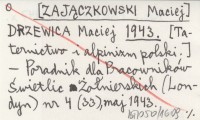 [ZAJĄCZKOWSKI Maciej]
DRZEWICA Maciej 1943. [Ta-
ternictwo i alpinizm polski.]
— Poradnik dla Pracowników
Świetlic Żołnierskich (Lon-
dyn) nr 4 (33), maj 1943.